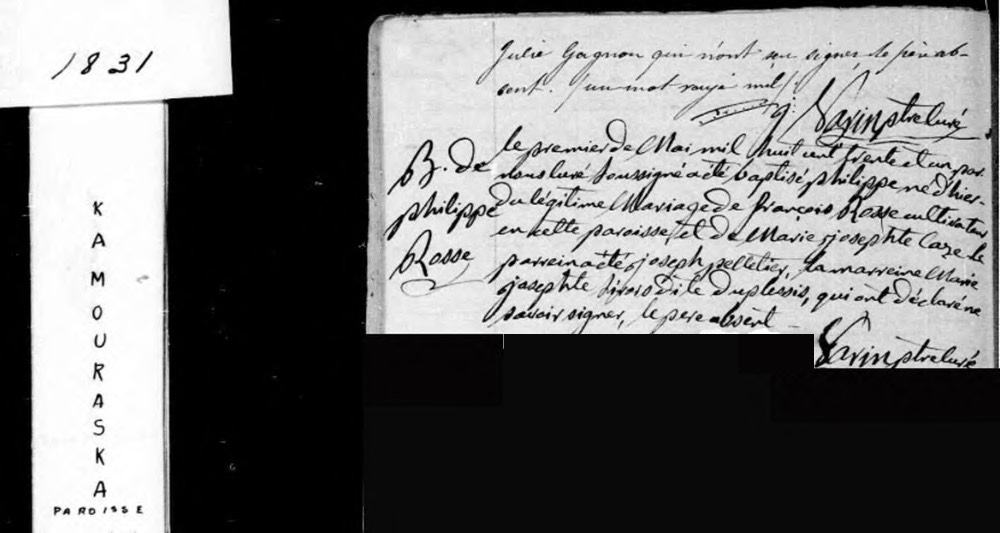 1831
KAMOURASKA
PAROISSE
Julie Gagnon qui n'ont seu signer, le père ab-
sent. un mot rayé nul
Varin ptre Curé
B. de
philippe
Rosse
le premier de Mai mil huit cent trente et un par
nous Curé soussigné a été baptisé philippe né d'hier
du légitime Mariage de françois Rosse cultivateur
en cette paroisse, et de Marie josephte Caze le
parrein a été joseph pelletier, la marreine Marie
josephte Sirois dite Duplessis, qui ont déclaré ne
savoir signer, le pere absent –
Varin ptre Curé